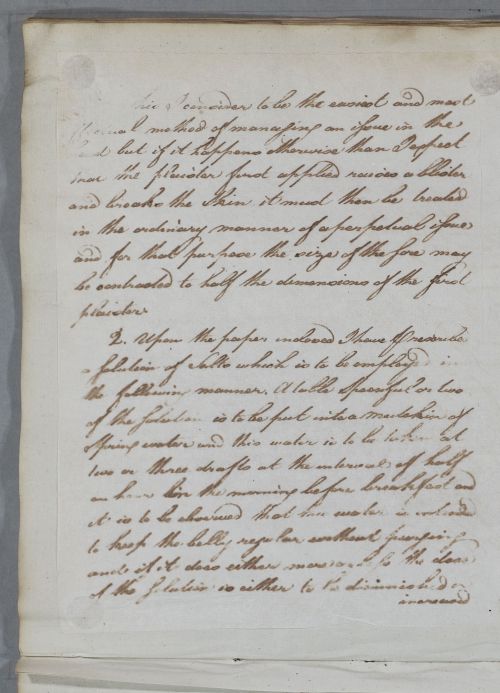 I consider to be the easiest and most
method of managing an issue in the
but if it happens otherwise than I expect
that the plaister first applied raises a blister
and breaks the Skin it must then be treated
in the ordinary manner of a perpetual issue
and for that purpose the size of the sore may
be contracted to half the demensions of the first
plaister
2. Upon the paper inclosed I have
a Solution of Salts which is to be employed in
the following manner. A table Spoonful or two
of the Solution is to be put into a mutchkin of
Spring water and this water is to be taken at
two or three drafts at the interval of half
an hour in the morning before breakfast and
it is to be observed that this water is intended
to keep the belly regular without purging
and if it does either more or less the dose
of the Solution is either to be diminished or
increased